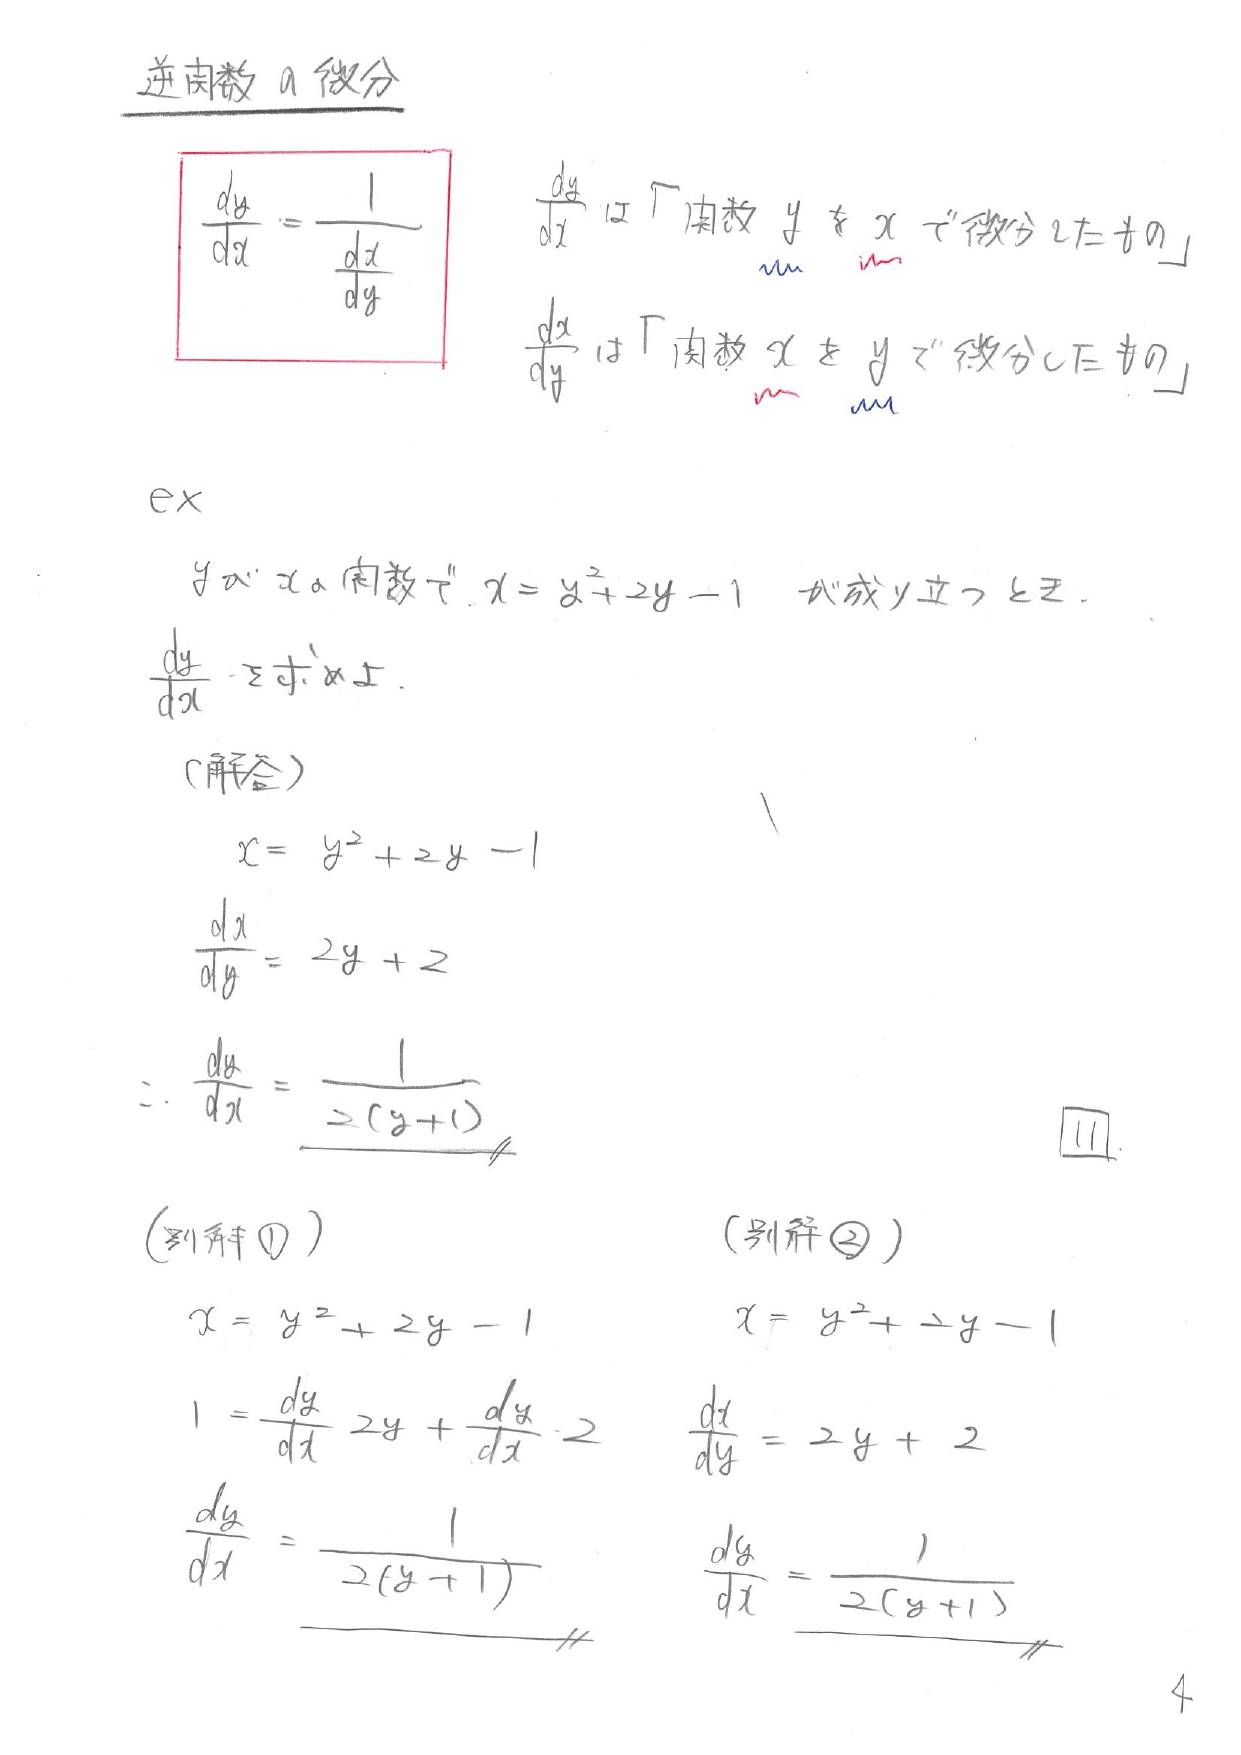 逆関数の微分
dy/dx = 1/(dx/dy)
dy/dx は「関数 y を x で微分したもの」
dx/dy は「関数 x を y で微分したもの」
ex
yがxの関数で x = y²+2y-1 が成り立つとき.
dy/dx を求めよ.
(解答)
x = y²+2y-1
dx/dy = 2y+2
∴ dy/dx = 1/2(y+1)
11
(別解①)
x = y²+2y-1
1 = dy/dx 2y + dy/dx・2
dy/dx = 1/2(y+1)
(別解②)
x = y²+2y-1
dx/dy = 2y+2
dy/dx = 1/2(y+1)
4